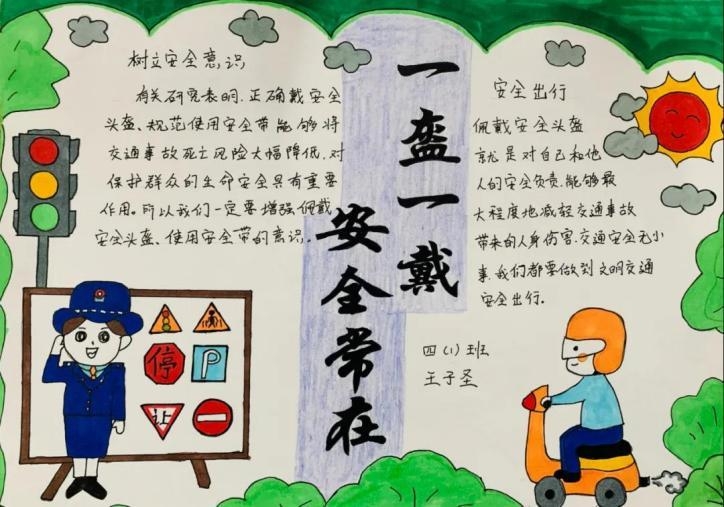 树立安全意识
有关研究表明,正确戴安全
头盔、规范使用安全带能够将
交通事故死亡风险大幅降低,对
保护群众的生命安全具有重要
作用。所以我们一定要增强佩戴
安全头盔、使用安全带的意识。
一盔一戴
安全常在
安全出行
佩戴安全头盔
就是对自己和他
人的安全负责,能够最
大程度地减轻交通事故
带来的人身伤害,交通安全无小
事,我们都要做到文明交通
安全出行。
四(1)班
王子圣
停
P
让